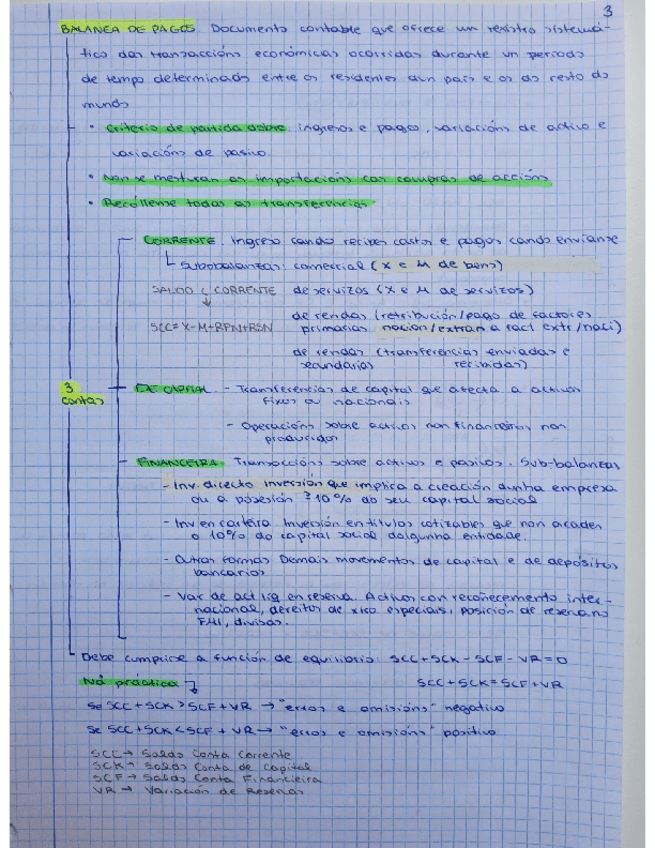 3
BALANZA DE PAGOS. Documento contable que ofrece un rexistro sistemá-
tico das transaccións económicas ocorridas durante un período
de tempo determinado entre os residentes dun país e os do resto do
mundo
• Criterio de partida dobre: ingresos e pagos, variación de activo e
variación de pasivo.
• Non se mesturan as importacións cas compras de accións
• Recóllense todas as transferencias
CORRENTE. Ingreso cando recibes cartos e pagos cando envíanse
Subobalanzas: comercial (X e M de bens)
SALDO C CORRENTE de servizos (X e M de servizos)
de rendas (retribución/pago de factores
SCC = X-M+RPN+RSN primarias nacion/extran a faci extr/naci)
de rendas (transferencias enviadas e
secundarias recividas)
3
contas
DE CAPITAL - Transferencias de capital que afecta a activos
fixos ou nacionais
- Operacións sobre activos non financeiros non
producidos
FINANCEIRA. Transaccións sobre activos e pasivos. Sub-balanzas
- Inv. directo inversión que implica a creación dunha empresa
ou a posesión ≥10% do seu capital social
- Inv en carteira. Inversión en títulos cotizables que non acaden
o 10% do capital social dalgunha entidade.
- Outras formas Demais movementos de capital e de depósitos
bancarios
- Var de act liq en reserva. Activos con recoñecemento inter-
nacional, dereitos de xiro especiais, posición de reserva no
FMI, divisas.
Debe cumprirse a función de equilibrio: SCC+SCK-SCF-VR=0
Na práctica SCC+SCK=SCF+VR
Se SCC+SCK>SCF+VR → "erros e omisións" negativo
Se SCC+SCK<SCF+VR → "erros e omisións" positivo
SCC → Saldo Conta Corrente
SCK → Saldo Conta de Capital
SCF → Saldo Conta Financieira
VR → Variación de Reservas